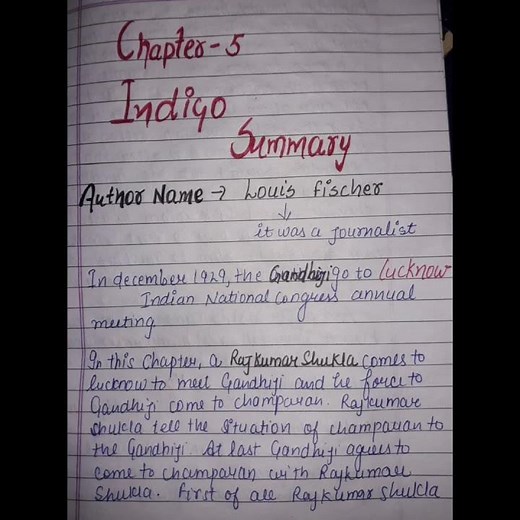 Chapter-5
Indigo
Summary
Author Name → Louis fischer
↓
it was a journalist
In december 1929, the Gandhiji go to lucknow
Indian National Congress annual
meeting
In this Chapter, a Rajkumar Shukla comes to
lucknow to meet Gandhiji and he force to
Gandhiji come to champaran. Rajkumar
shukla tell the situation of champaran to
the Gandhiji. At last Gandhiji agrees to
come to champaran with Rajkumar
Shukla. first of all Rajkumar shukla